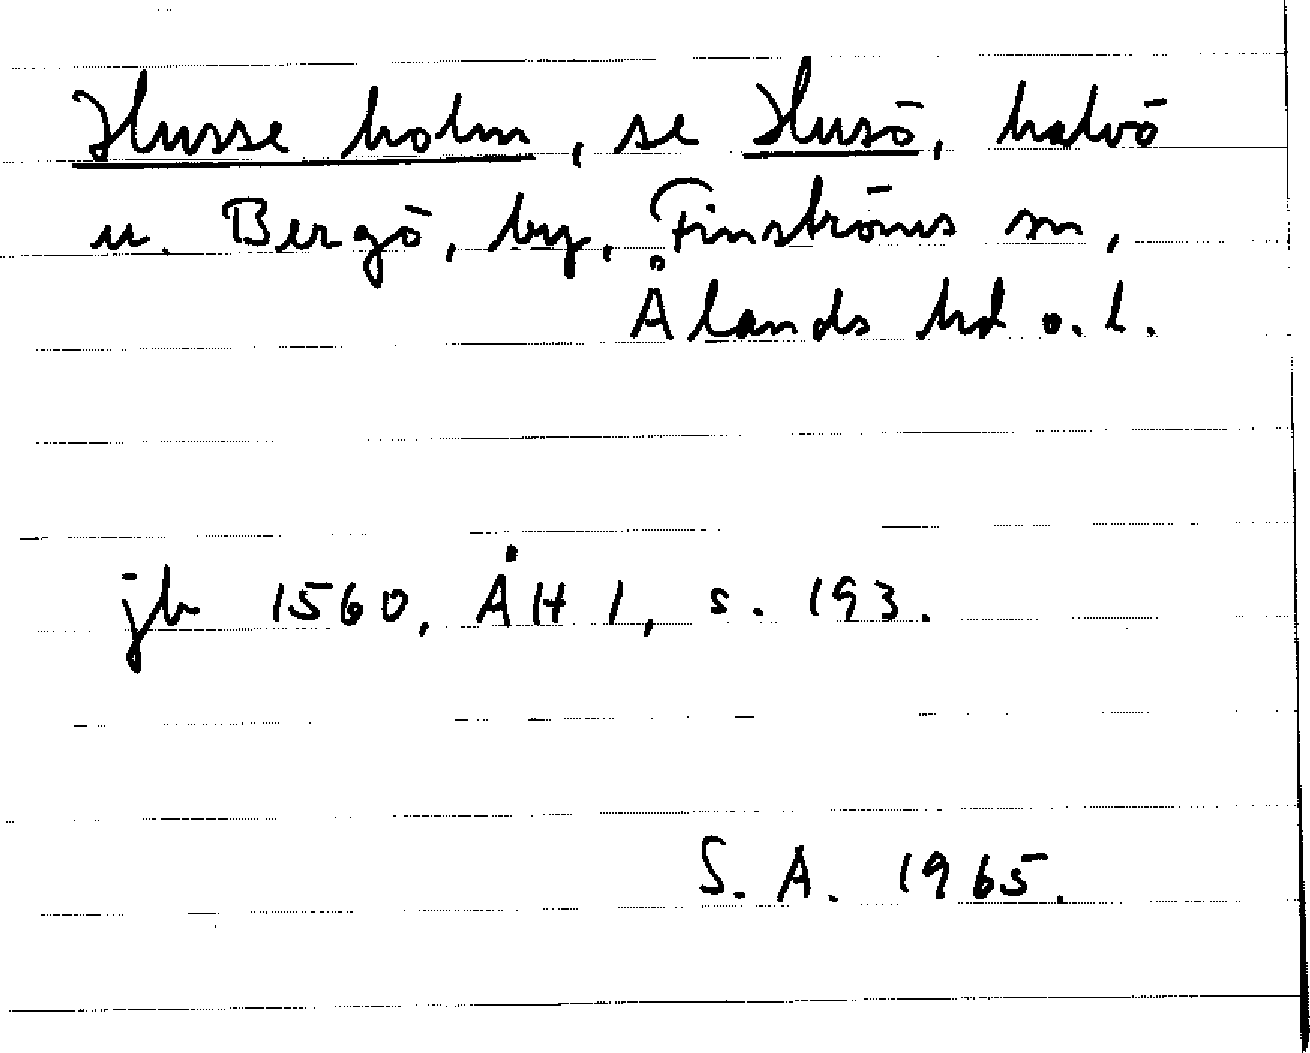 Husse holm, se Husö, halvö
u. Bergö, by, Finströms sn,
Ålands hd o. l.
jb 1560, ÅH 1, s. 193.
S. A. 1965.